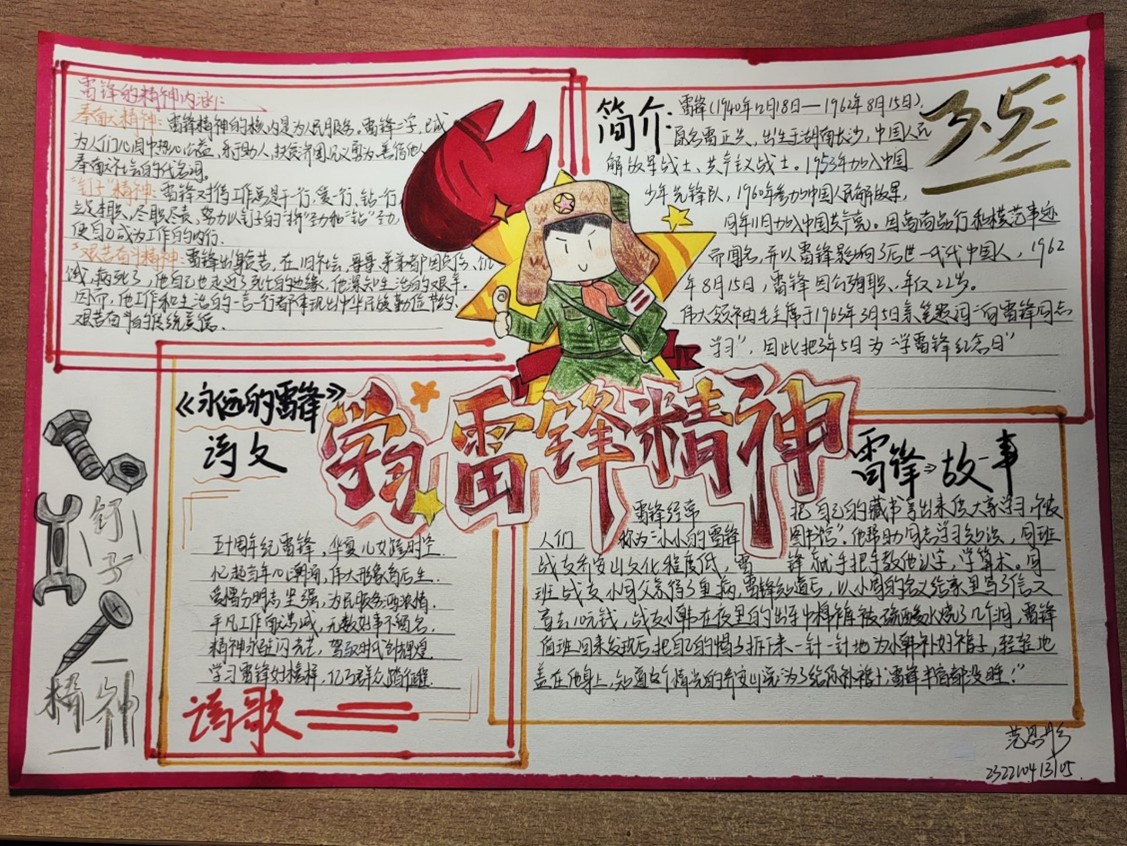 雷锋的精神内涵:
奉献精神:雷锋精神的核心是为人民服务。雷锋二字,已成
为人们心目中热心公益、乐于助人、扶贫济困、见义勇为、善待他人
奉献社会的代名词。
"钉子"精神:雷锋对待工作总是干一行、爱一行、钻一行
立足本职、尽职尽责、努力以钉子的"挤"劲和"钻"劲
使自己成为工作的内行。
艰苦奋斗精神:雷锋出身贫苦,在旧社会,哥哥、弟弟
饿病死了,他自己也走近了死亡的边缘,他深知生活的艰辛。
因而,他工作和生活的一言一行都体现出中华民族勤俭节约、
艰苦奋斗的传统美德。
简介:
雷锋(1940年12月18日—1962年8月15日),
原名雷正兴、出生于湖南长沙,中国人民
解放军战士、共产主义战士。1953年加入中国
少年先锋队,1960年参加中国人民解放军,
同年11月加入中国共产党。因高尚品行和模范事迹
而闻名,并以雷锋影响了后世一代代中国人,1962
年8月15日,雷锋因公殉职、年仅22岁。
伟大领袖毛主席于1963年3月5日亲笔题词"向雷锋同志
学习",因此把3年5日为"学雷锋纪念日"
3.5
学习雷锋精神
《永远的雷锋》
诗文
五十周年纪雷锋,华夏儿女
忆起当年心潮涌,伟人形象
爱憎分明志坚强,为民服务
平凡工作,无数好事不留名
精神永驻闪光芒,
学习雷锋好榜样,亿万群众
诗歌
钉子
精神
雷锋故事
雷锋经常
把自己的藏书拿出来供大家学习,被
人们
称为"小小的雷锋
图书馆",他帮助同志学习知识,同班
战友乔安山文化程度低,雷
锋就手把手教他认字,学算术。同
班战友小周父亲得了重病,雷锋知道后,以小周的名义给家里写了信又
寄去10元钱,战友小韩在夜里的出车中棉裤被硫酸水烧了几个洞,雷锋
值班回来发现后,把自己的帽子拆下来一针一针地为小韩补好裤子,轻轻地
盖在他身上,
范思彤
232210413105